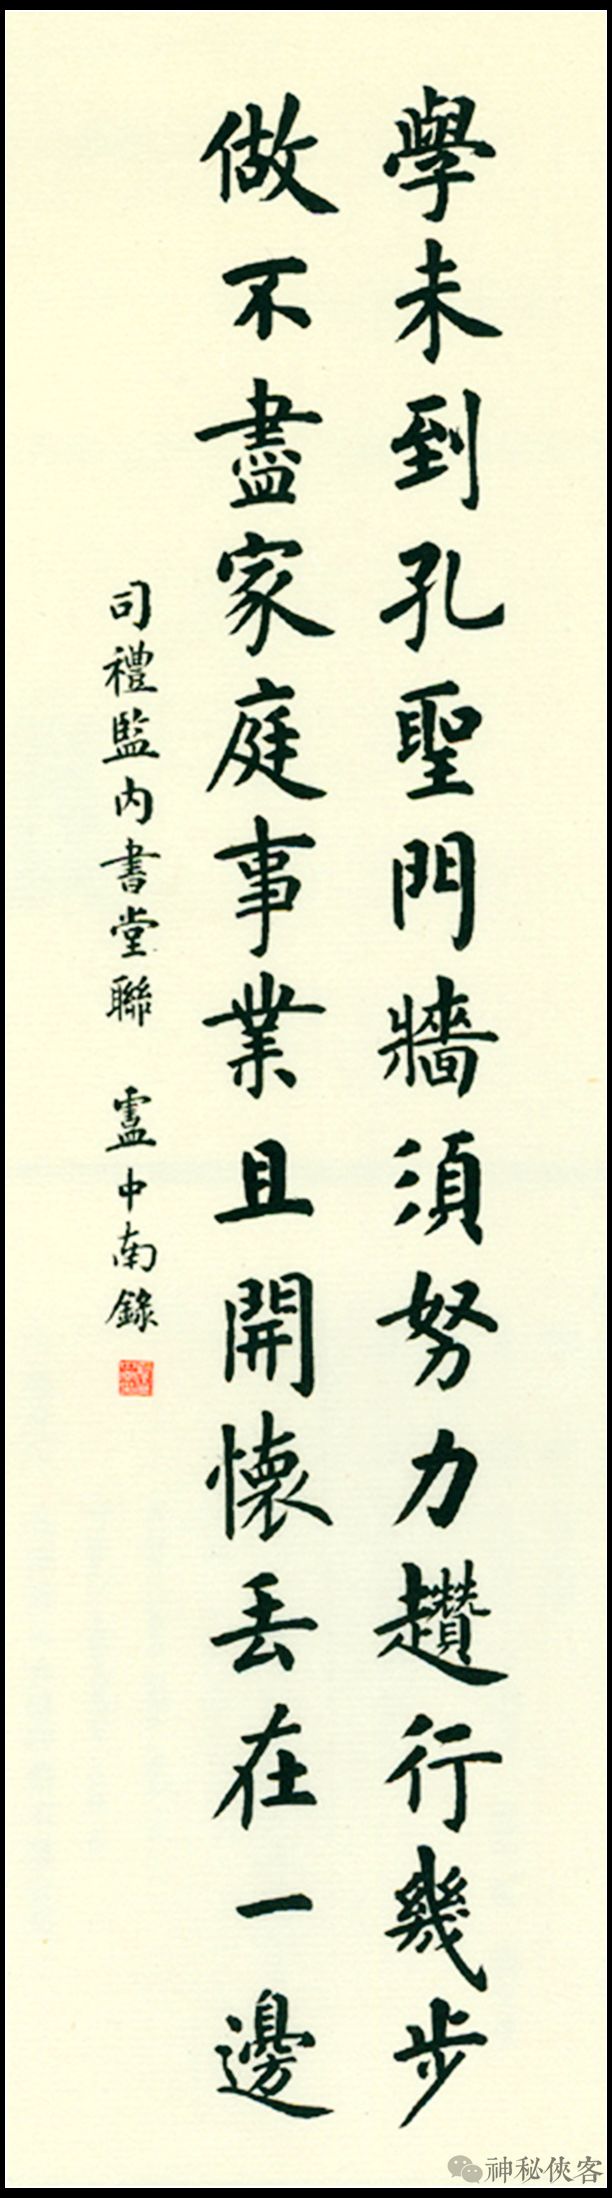 學未到孔聖門牆須努力趲行幾步
做不盡家庭事業且開懷丟在一邊
司禮監內書堂聯 盧中南錄
神秘俠客